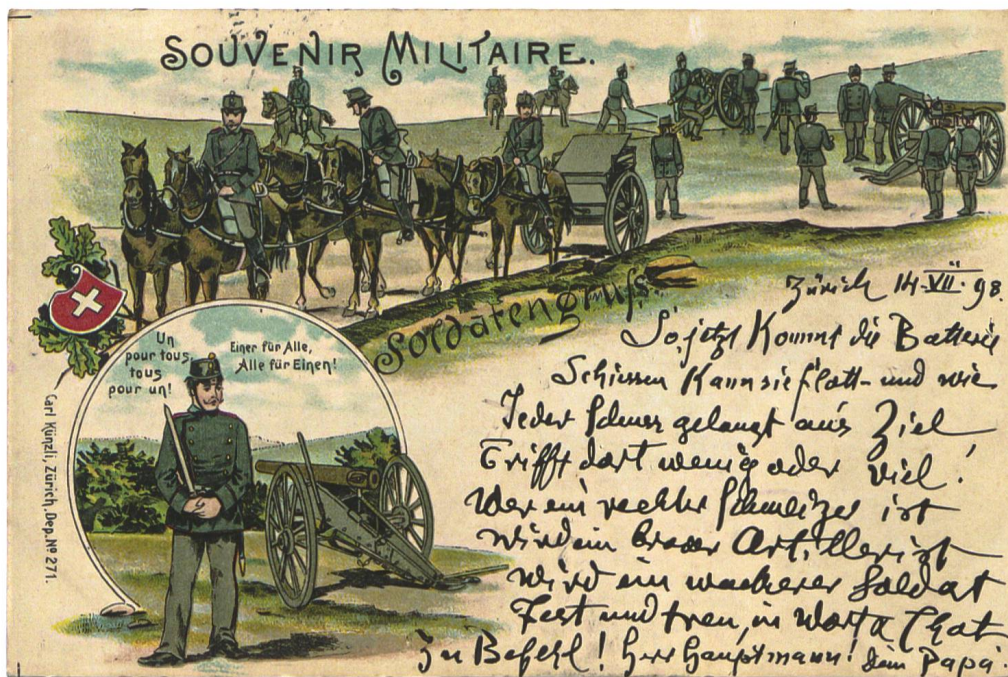 SOUVENIR MILITAIRE.
Soldatengruss.
Un
pour tous,
tous
pour un!
Einer für Alle,
Alle für Einen!
Carl Künzli, Zürich, Dep. No 271.
Zürich 14. VII. 98
So, jetzt Kommt die Batterie
Schiessen Kann sie flott - und wie
Jeder Schuss gelangt ans Ziel
Trifft dort wenig oder viel!
Wer ein rechter Schweizer ist
wird ein braver Artillerist
wird ein wackerer Soldat
Fest und treu, in Wort & That
Zu Befehl! Herr Hauptmann! Dein Papa.